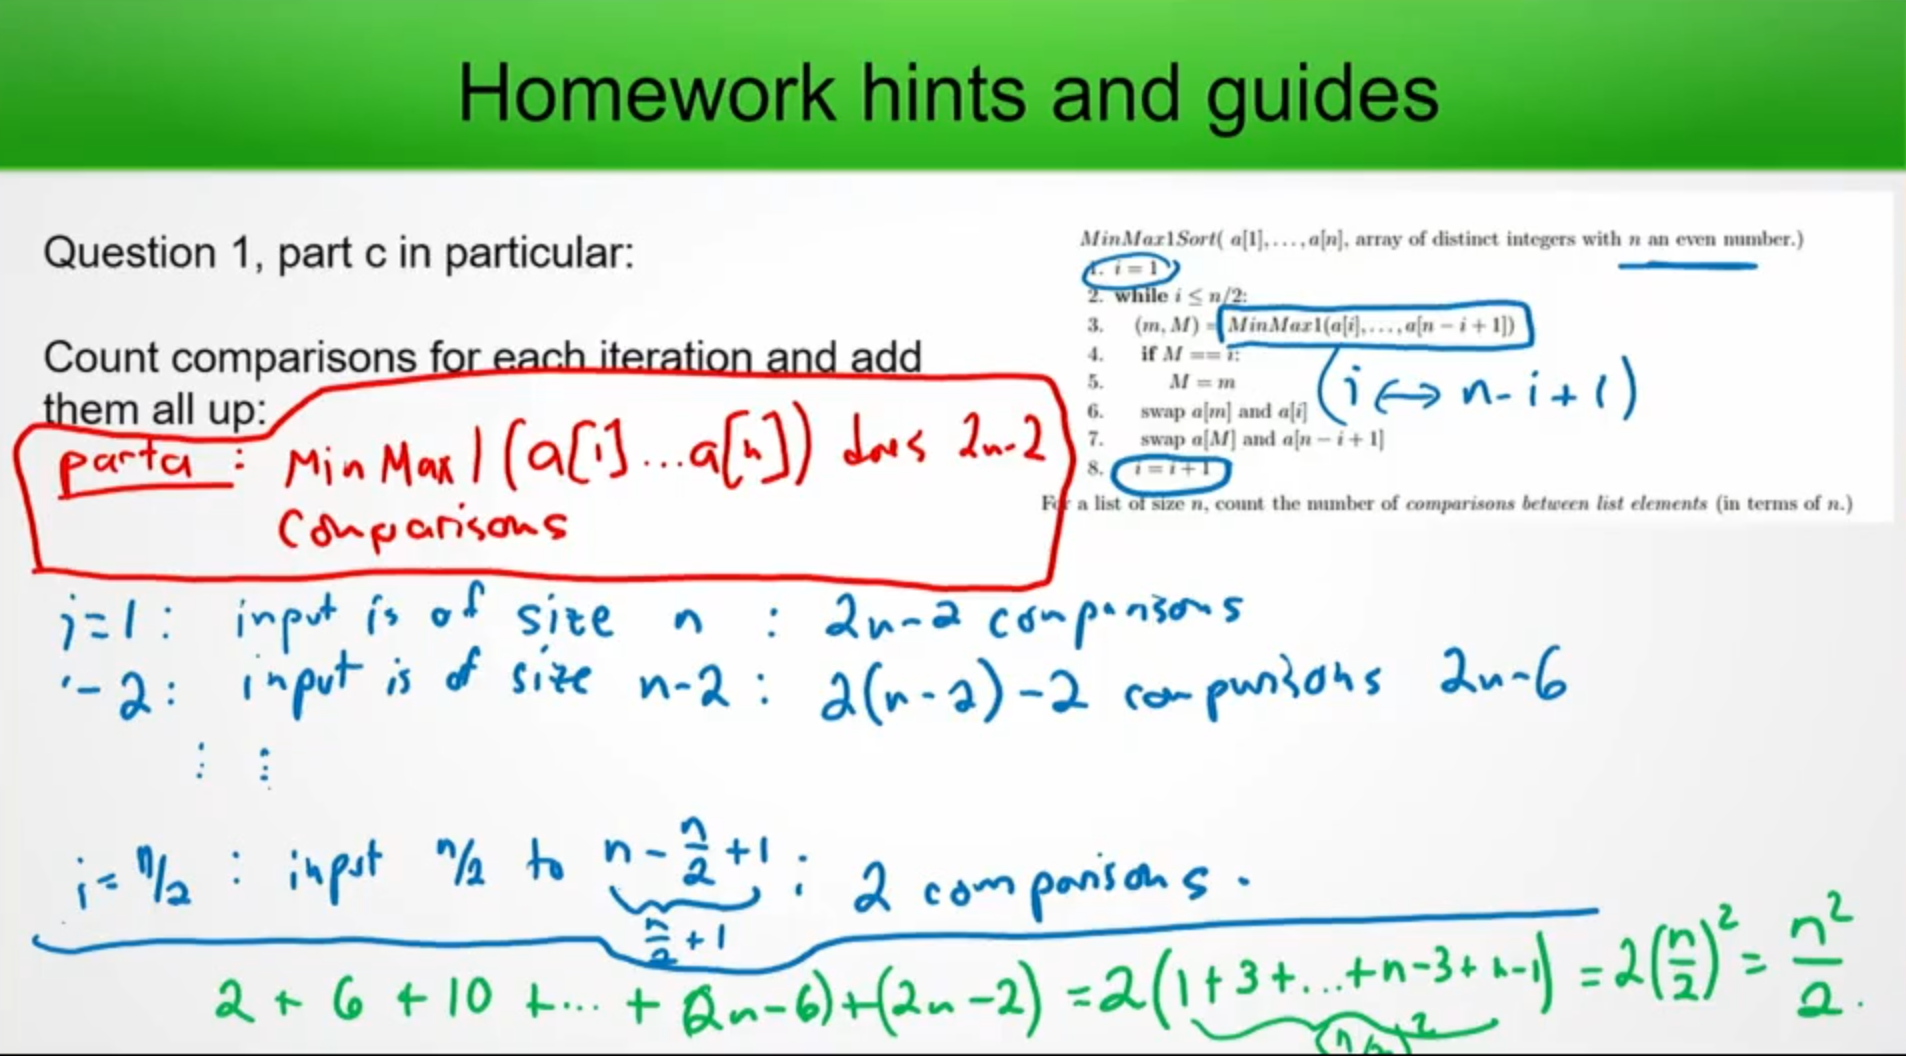 Homework hints and guides
Question 1, part c in particular:
Count comparisons for each iteration and add
them all up:
MinMax1Sort( a[1], . . . , a[n], array of distinct integers with n an even number.)
1. i = 1
2. while i ≤ n/2:
3. (m, M) = MinMax1(a[i], . . . , a[n − i + 1])
4. if M == i:
5. M = m
6. swap a[m] and a[i]
7. swap a[M] and a[n − i + 1]
8. i = i + 1
(i ↔ n-i+1)
For a list of size n, count the number of comparisons between list elements (in terms of n.)
part a : MinMax1(a[1]...a[n]) does 2n-2
comparisons
i=1 : input is of size n : 2n-2 comparisons
- 2 : input is of size n-2 : 2(n-2)-2 comparisons 2n-6
⋮ ⋮
i=n/2 : input n/2 to n-n/2+1 : 2 comparisons.
n/2+1
2 + 6 + 10 + ... + (2n-6)+(2n-2) = 2(1+3+...+n-3+n-1) = 2(n/2)² = n²/2.
(n/2)²